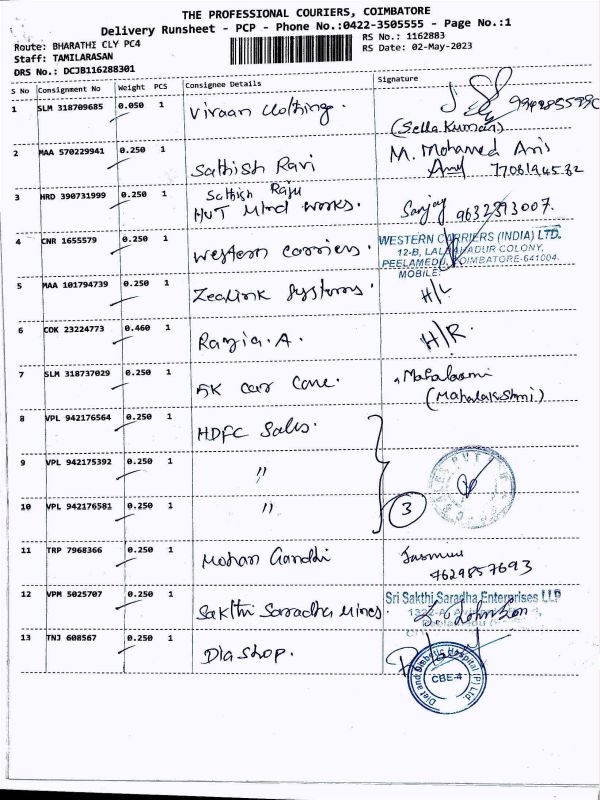 THE PROFESSIONAL COURIERS, COIMBATORE
Delivery Runsheet - PCP - Phone No.:0422-3505555 - Page No.:1
Route: BHARATHI CLY PC4
RS No.: 1162883
Staff: TAMILARASAN
RS Date: 02-May-2023
DRS No.: DCJB116288301
S No Consignment No Weight PCS Consignee Details Signature
1 SLM 318709685 0.050 1 Vivaan Clothing.
(Sella Kumar)
2 MAA 570229941 0.250 1 Sathish Ravi M. Mohamed Anis
3 HRD 390731999 0.250 1 Sathish Raju
HUT Mind works. Sanjay 9632893007.
4 CNR 1655579 0.250 1 Western Carriers.
WESTERN CARRIERS (INDIA) LTD.
12-B, LAL BAHADUR COLONY,
PEELAMEDU, COIMBATORE-641004.
MOBILE:
5 MAA 101794739 0.250 1 Zealink Systems. H/L
6 CDK 23224773 0.460 1 Razia.A. H/R.
7 SLM 318737029 0.250 1 AK car Care. Mahalaxmi
(Mahalakshmi)
8 VPL 942176564 0.250 1 HDFC Sales.
9 VPL 942175392 0.250 1 "
10 VPL 942176581 0.250 1 " 3
11 TRP 7968366 0.250 1 Mohan Gandhi
9629857693
12 VPM 5025707 0.250 1 Sakthi Saradha Mines
Sri Sakthi Saradha Enterprises LLP
13 TNJ 608567 0.250 1 Dia Shop.
Diet and Diabetic Hospital (P) Ltd
CBE-4